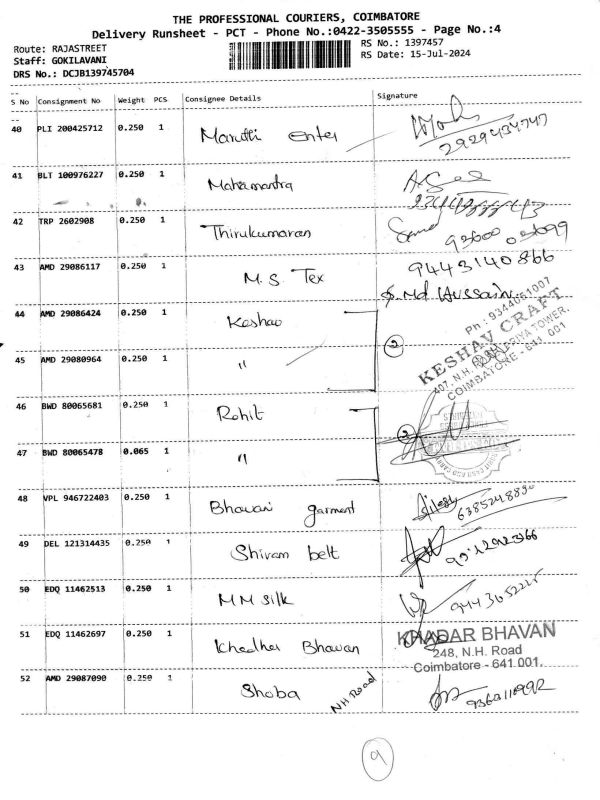 THE PROFESSIONAL COURIERS, COIMBATORE
Delivery Runsheet - PCT - Phone No.:0422-3505555 - Page No.:4
Route: RAJASTREET
Staff: GOKILAVANI
DRS No.: DCJB139745704
RS No.: 1397457
RS Date: 15-Jul-2024
S No Consignment No Weight PCS Consignee Details Signature
40 PLI 200425712 0.250 1 Marutti enter
2929434747
41 BLT 100976227 0.250 1 Mahamantra
42 TRP 2602908 0.250 1 Thirukumaran 93600 03699
43 AMD 29086117 0.250 1 M.S. Tex 9443140866
S. Md Hussain
44 AMD 29086424 0.250 1 Keshav
45 AMD 29080964 0.250 1 " 2
Ph: 9344061007
KESHAV CRAFT
COIMBATORE - 641 001
46 BWD 80065681 0.250 1 Rohit
47 BWD 80065478 0.065 1 " 2
48 VPL 946722403 0.250 1 Bhavani garment 6385248890
49 DEL 121314435 0.250 1 Shivam belt
50 EDQ 11462513 0.250 1 MM silk
51 EDQ 11462697 0.250 1 Khedher Bhavan
KHADAR BHAVAN
248, N.H. Road
Coimbatore - 641 001.
52 AMD 29087090 0.250 1 Shoba NH Road
9